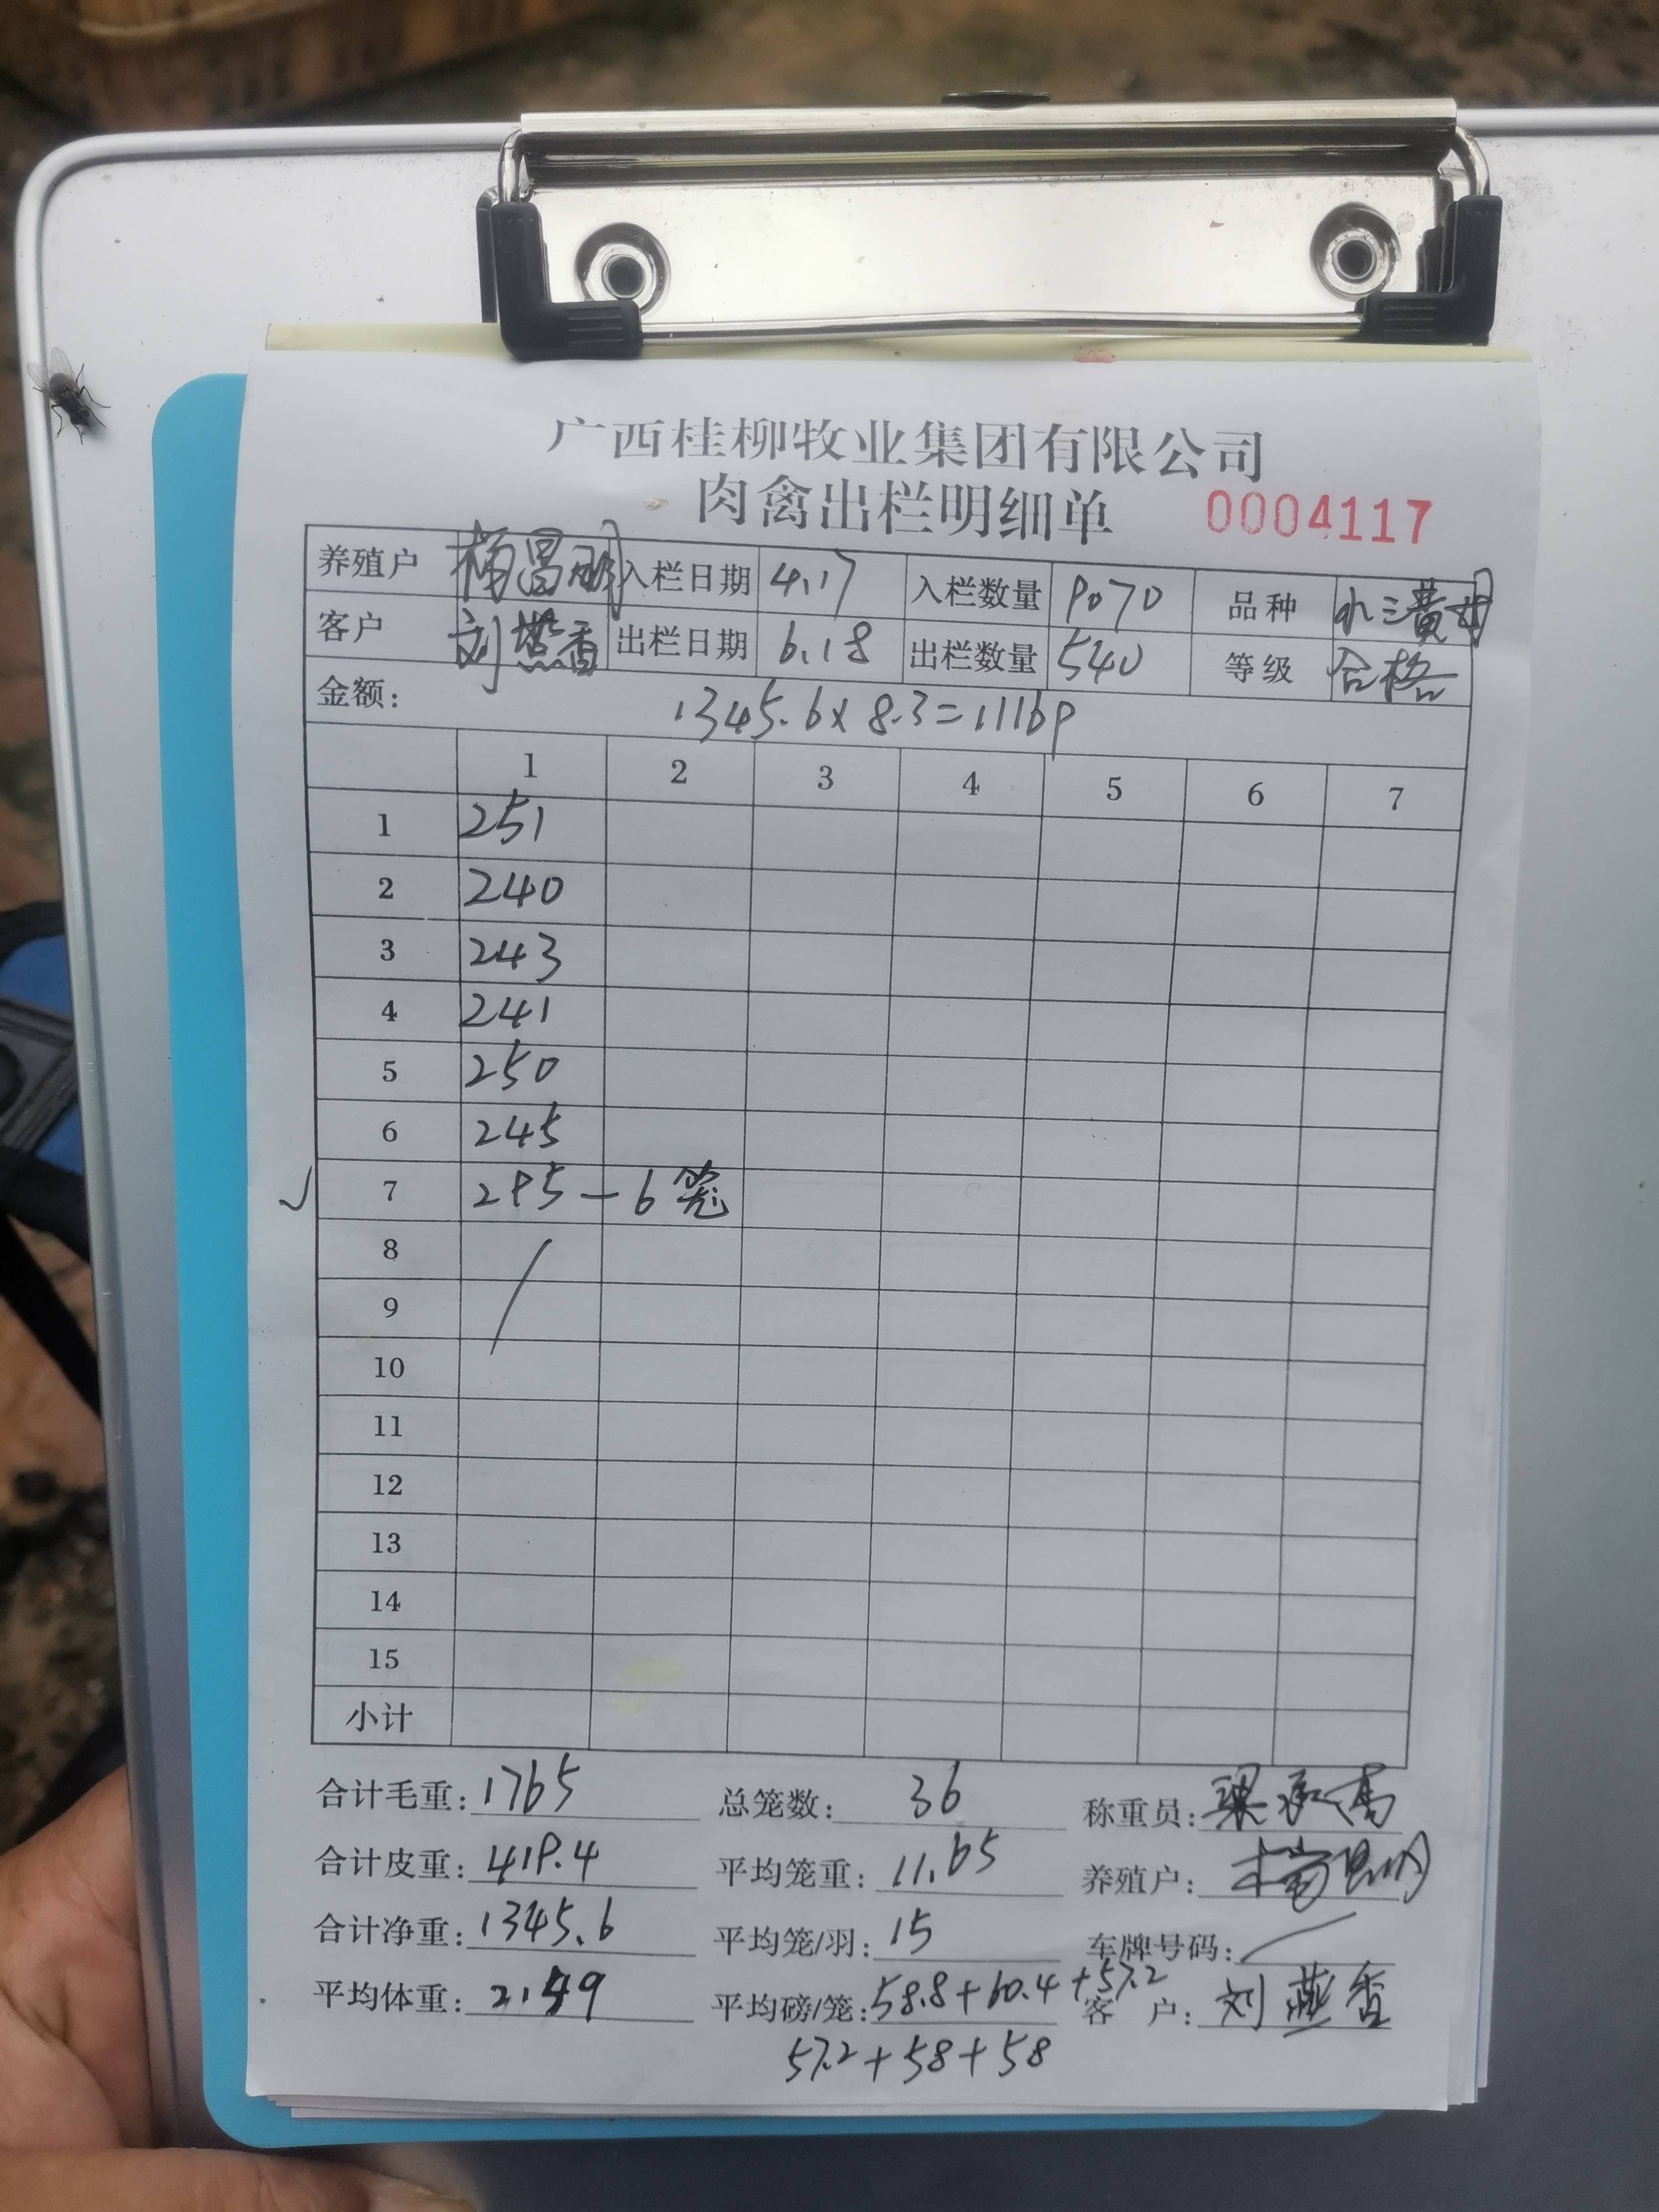 广西桂柳牧业集团有限公司
肉禽出栏明细单 0004117
养殖户 杨昌 入栏日期 4.17 入栏数量 9070 品种 三黄
客户 刘燕香 出栏日期 6.18 出栏数量 540 等级 合格
金额: 1345.6×8.3=11169
1 2 3 4 5 6 7
1 251
2 240
3 243
4 241
5 250
6 245
√ 7 295 — 6笼
8
9
10
11
12
13
14
15
小计
合计毛重: 1765 总笼数: 36 称重员: 梁
合计皮重: 419.4 平均笼重: 11.65 养殖户: 杨昌
合计净重: 1345.6 平均笼/羽: 15 车牌号码:
平均体重: 2.49 平均磅/笼: 58.8+60.4+57.2 客户: 刘燕香
57.2+58+58